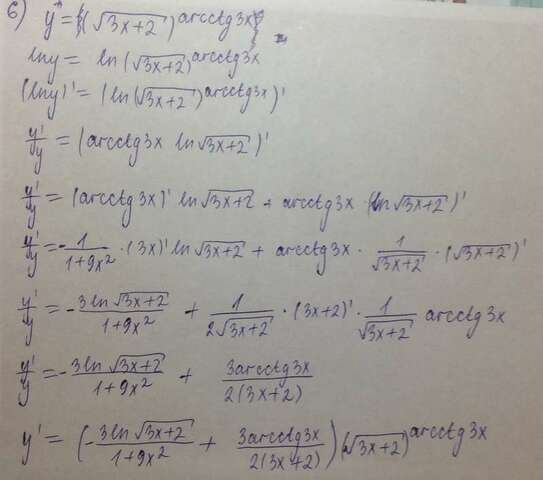 6) y = (√3x+2)^arcctg3x
lny = ln(√3x+2)^arcctg3x
(lny)' = (ln(√3x+2)^arcctg3x)'
y'/y = (arcctg3x ln√3x+2)'
y'/y = (arcctg3x)' ln√3x+2 + arcctg3x · (ln√3x+2)'
y'/y = -1/(1+9x²) · (3x)' ln√3x+2 + arcctg3x · 1/√3x+2 · (√3x+2)'
y'/y = -3ln√3x+2/(1+9x²) + 1/(2√3x+2) · (3x+2)' · 1/√3x+2 arcctg3x
y'/y = -3ln√3x+2/(1+9x²) + 3arcctg3x/(2(3x+2))
y' = (-3ln√3x+2/(1+9x²) + 3arcctg3x/(2(3x+2)))(√3x+2)^arcctg3x